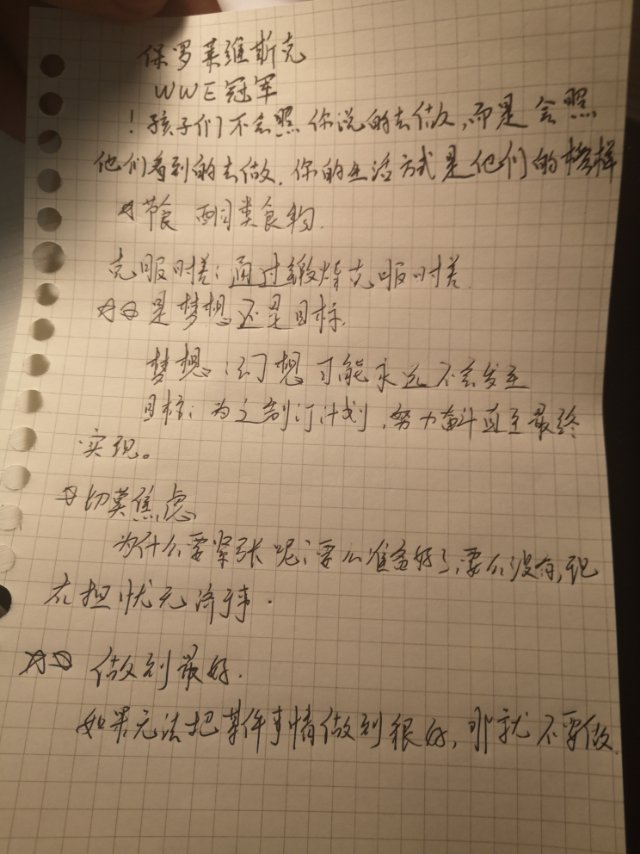 保罗莱维斯克
WWE冠军
！孩子们不会照你说的去做，而是会照
他们看到的去做。你的生活方式是他们的榜样
☆节食 酮类食物.
克服时差：通过锻炼克服时差
☆☆是梦想还是目标.
梦想：幻想可能永远不会发生
目标：为之制订计划，努力奋斗直至最终
实现。
☆切莫焦虑
为什么要紧张呢？要么准备好了，要么没有，现
在担忧无济于事.
☆☆ 做到最好.
如果无法把某件事情做到很好，那就不要做.